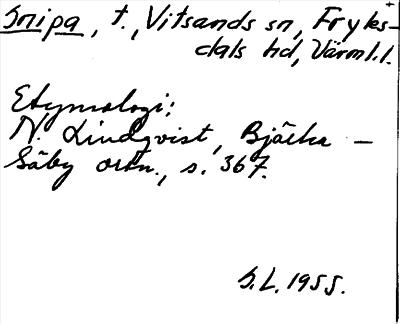 Snipa, t., Vitsands sn, Fryks-
dals hd, Värml.l.
Etymologi:
N. Lindqvist, Bjärka –
Säby ortn., s. 367.
S.L. 1955.